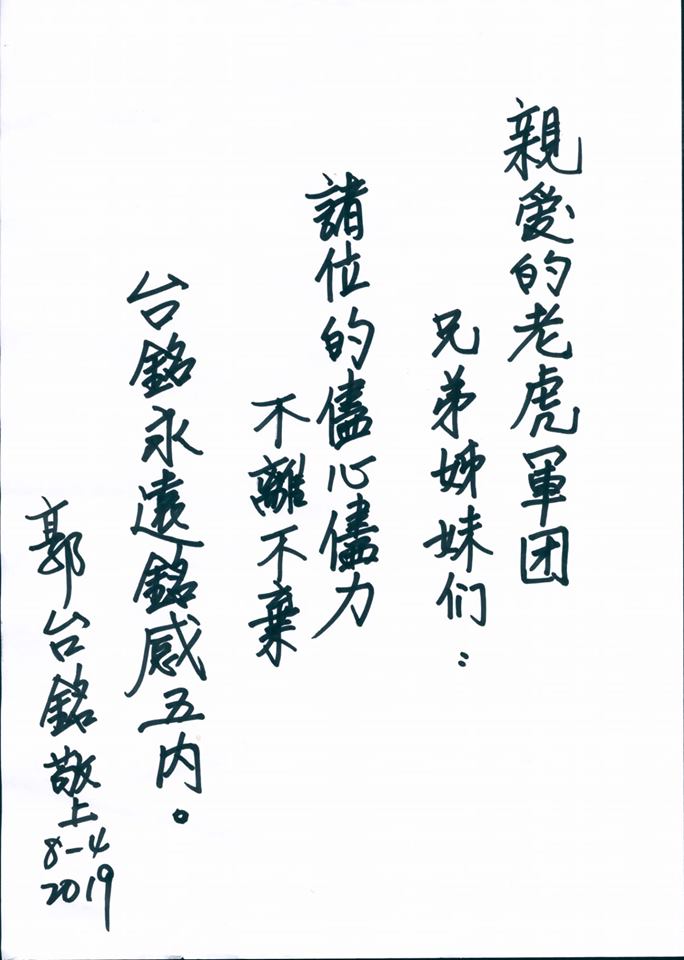 親愛的老虎軍团
兄弟姊妹们：
諸位的儘心儘力
不離不棄
台銘永遠銘感五内。
郭台銘敬上
8-4
2019